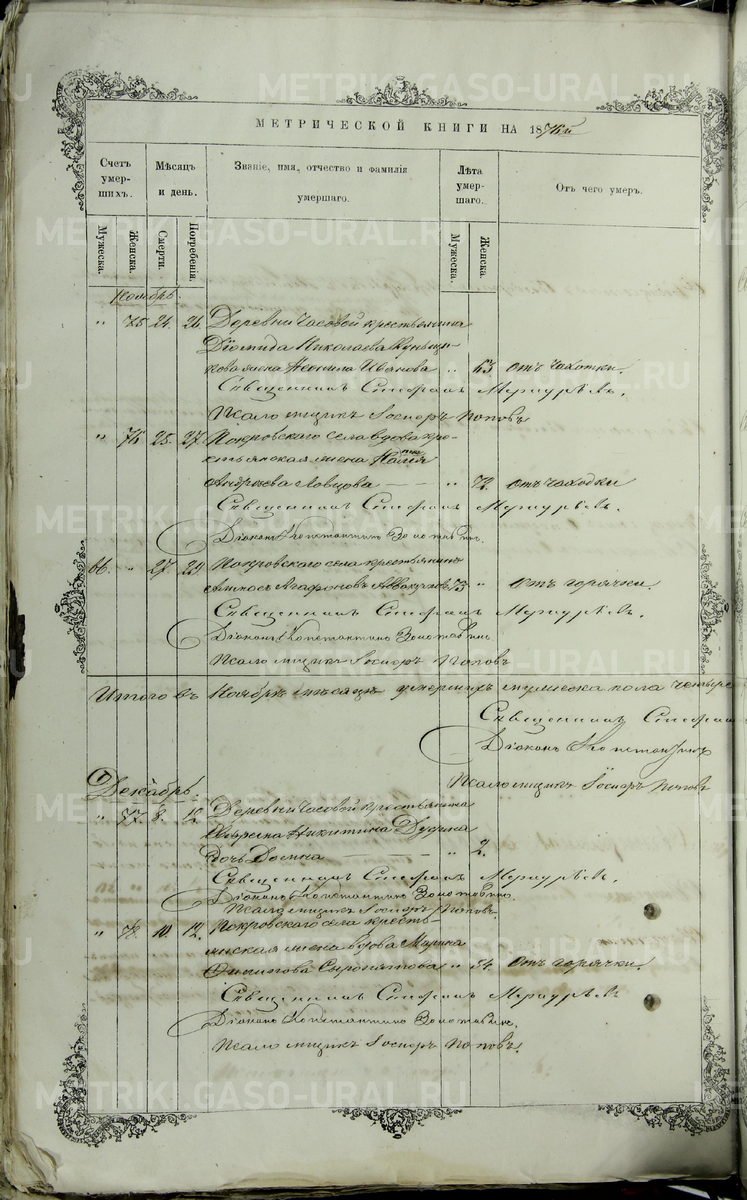 МЕТРИЧЕСКОЙ КНИГИ НА 1876й
Счетъ умершихъ. Мѣсяцъ и день. Званіе, имя, отчество и фамилія умершаго. Лѣта умершаго. Отъ чего умеръ.
Мужеска. Женска. Смерти. Погребенія. Мужеска. Женска.
Ноябрь.
" 75 24. 26. Деревни Часовой крестьянина
Діомида Николаева
жена Неонила Иванова " 63 отъ чахотки.
Священникъ Стефанъ Меркурьевъ.
Псаломщикъ Іосифъ Поповъ
" 76 25. 27. Покровскаго села вдова кре-
стьянская жена
Андреева Ловцова — " 72. отъ чаходки
Священникъ Стефанъ Меркурьевъ.
Діаконъ Константинъ Золотавинъ.
66. " 27 29 Покровскаго села крестьянинъ
Агафоновъ 73 " отъ горячки.
Священникъ Стефанъ Меркурьевъ.
Діаконъ Константинъ Золотавинъ
Псаломщикъ Іосифъ Поповъ
Итого въ Ноябрѣ мѣсяцѣ умершихъ мужеска пола четыре
Священникъ Стефанъ
Діаконъ Константинъ
Псаломщикъ Іосифъ Поповъ
Декабрь.
" 77. 8. 12. Деревни Часовой крестьянина
Никитина
дочь — " 2.
Священникъ Стефанъ Меркурьевъ.
Діаконъ Константинъ Золотавинъ
Псаломщикъ Іосифъ Поповъ.
" 78. 10. 12. Покровскаго села кресть-
янская жена вдова Марина
" 54. отъ горячки.
Священникъ Стефанъ Меркурьевъ
Діаконъ Константинъ Золотавинъ.
Псаломщикъ Іосифъ Поповъ.
METRIKI.GASO-URAL.RU